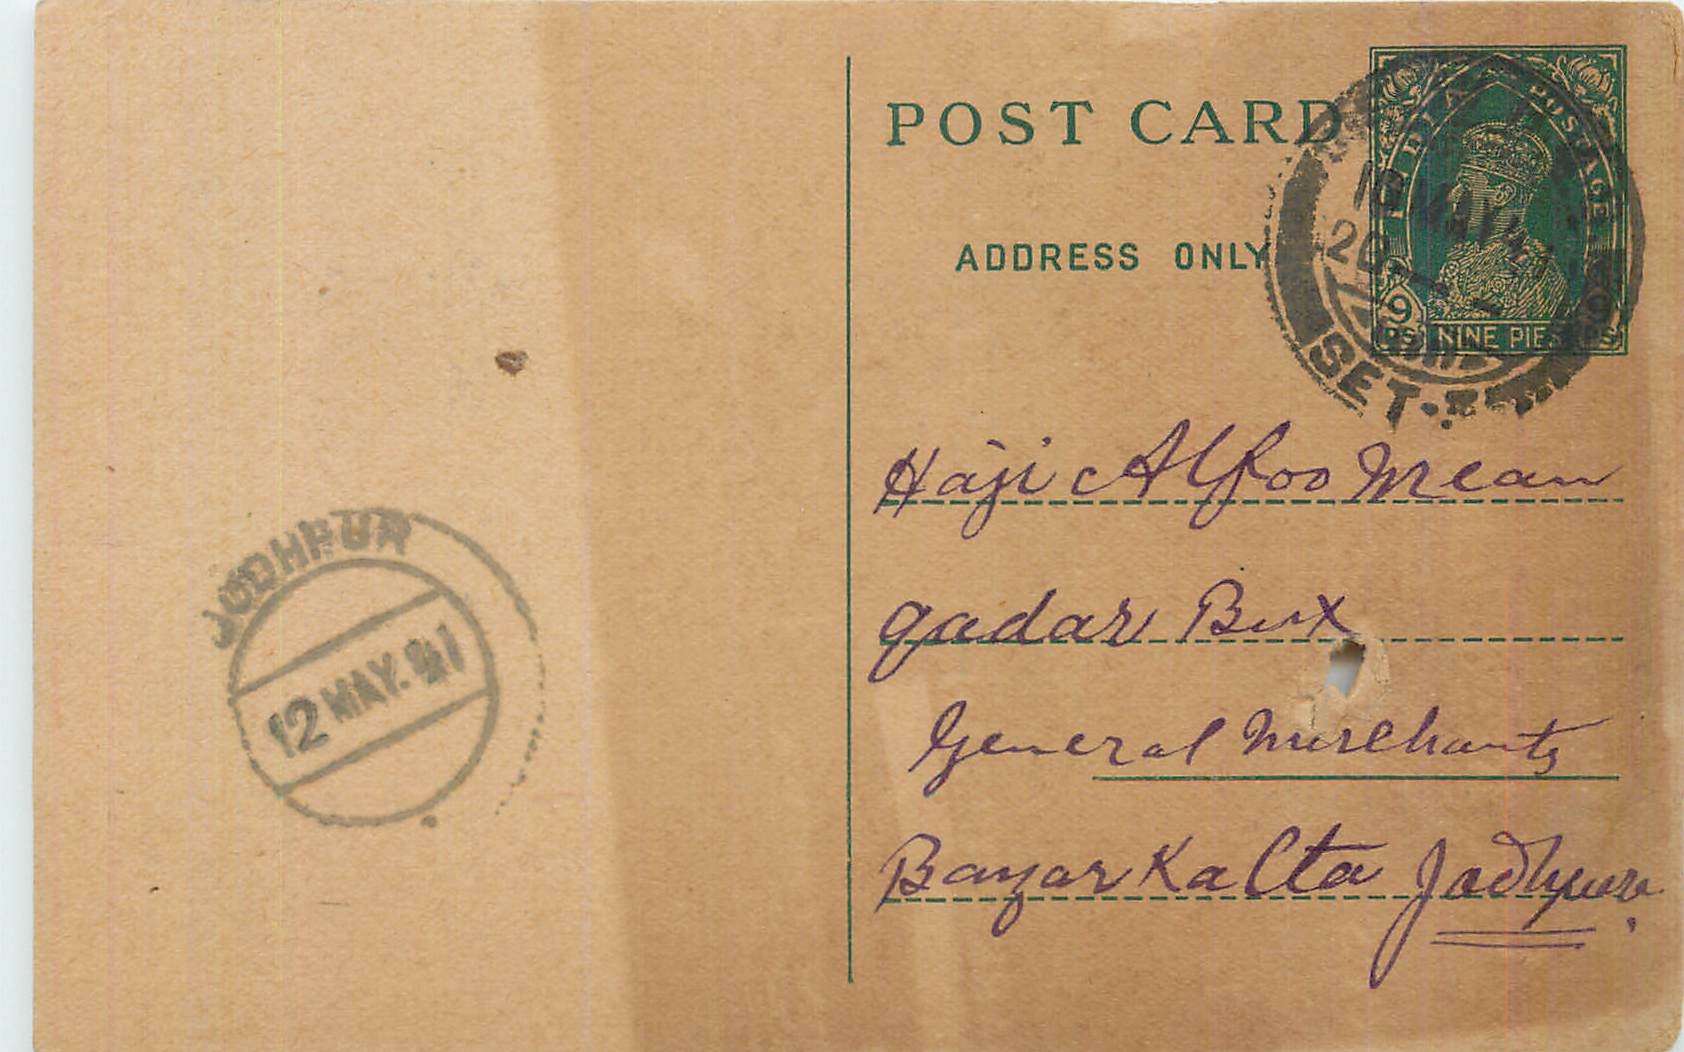 POST CARD
ADDRESS ONLY
INDIA POSTAGE
9 Ps NINE PIES
MAY 41
SET.
Haji Alfoo Mean
qadar Bux
General Merchants
Bazar Katta Jodhpur.
JODHPUR
12 MAY. 41